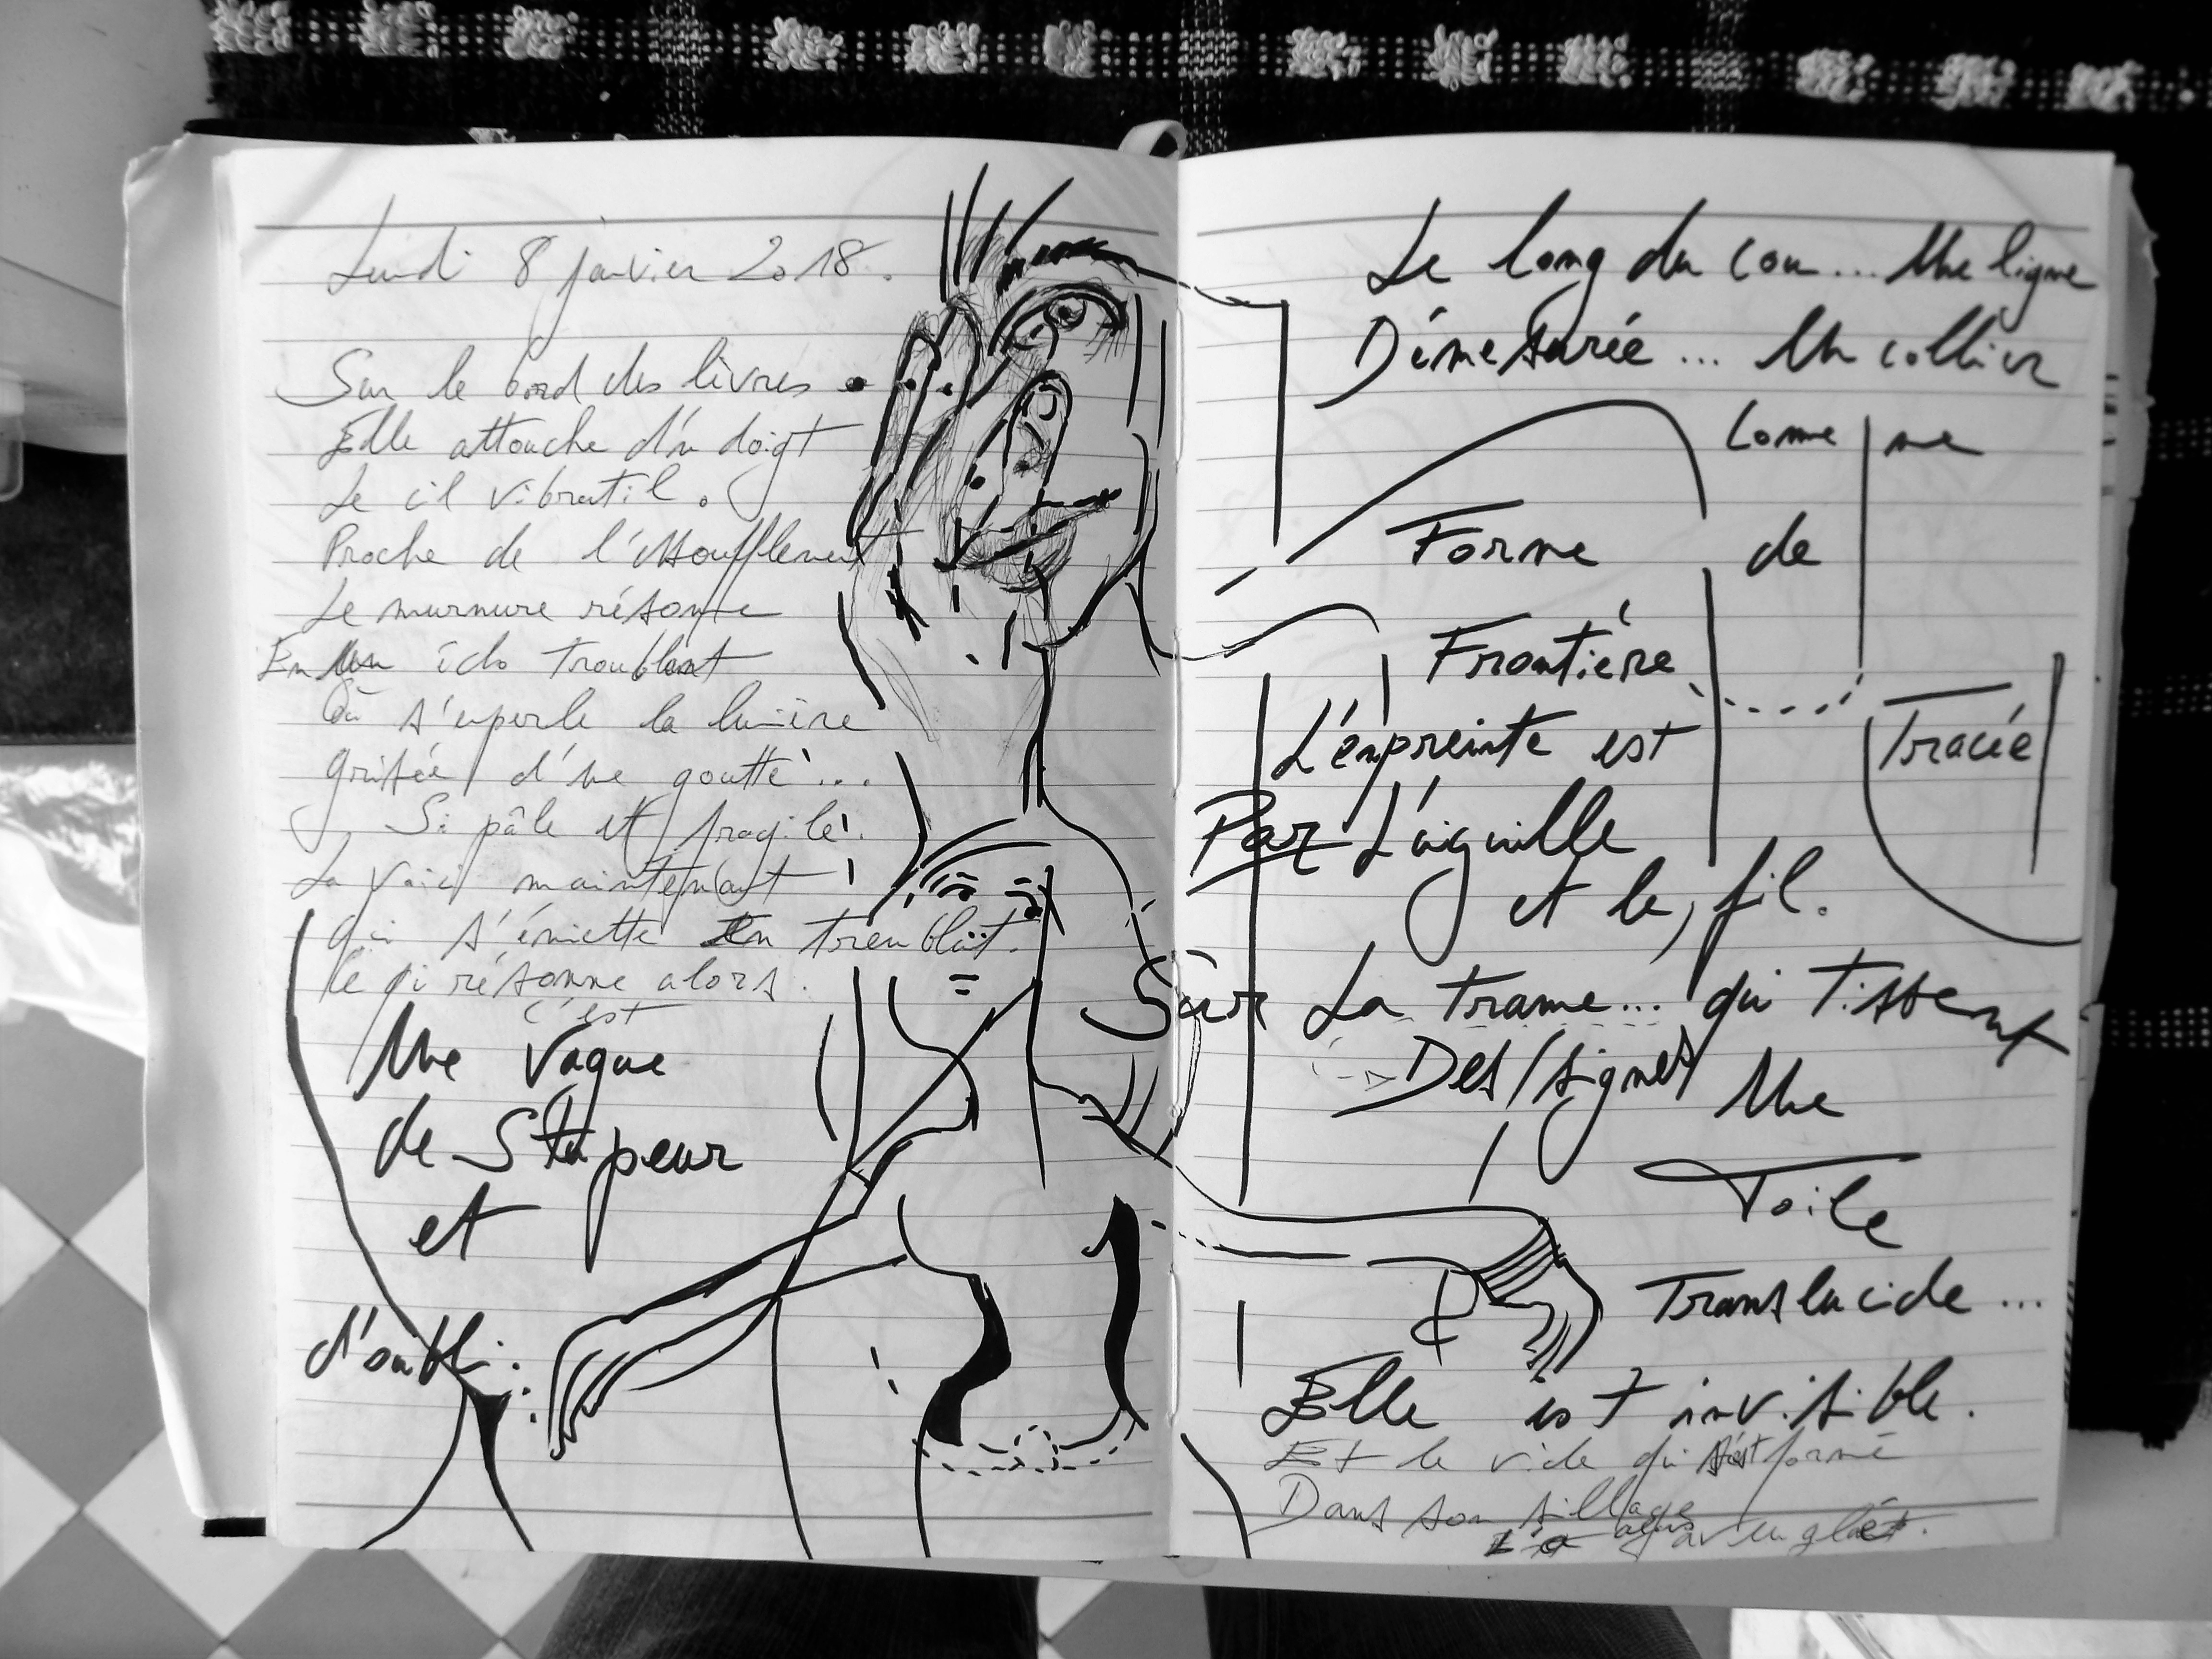 Lundi 8 janvier 2018.
Sur le bord des lèvres
Elle attouche d'un doigt
Le cil vibratil.
Proche de l'essoufflement
Le murmure résonne
En Un écho troublant
Où s'emperle la lumière
Grisée d'une goutte...
Si pâle et fragile!
La voici maintenant!
Qui s'émiette En tremblant.
Ce qui résonne alors.
c'est
Une Vague
de Stupeur
et
d'oubli.
Le long du cou... Une ligne
Démesurée... Un collier
Comme une
Forme de
Frontière
L'empreinte est Tracée
Par L'aiguille
et le fil.
Sur La trame... qui Tissent
Des signes Une
Toile
Translucide...
Elle est invisible.
Et le vide qui s'est formé
Dans son sillage